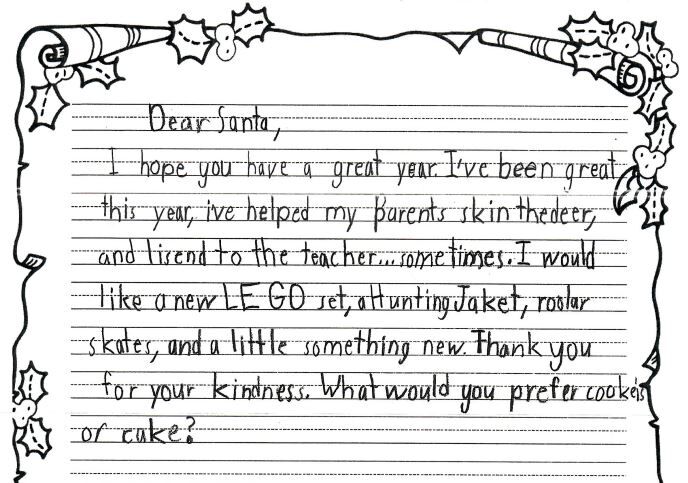 Dear Santa,
I hope you have a great year. I've been great
this year, ive helped my parents skin the deer,
and lisend to the teacher...sometimes. I would
like a new LEGO set, a Hunting Jaket, rolar
skates, and a little something new. Thank you
for your kindness. What would you prefer cookeis
or cake?